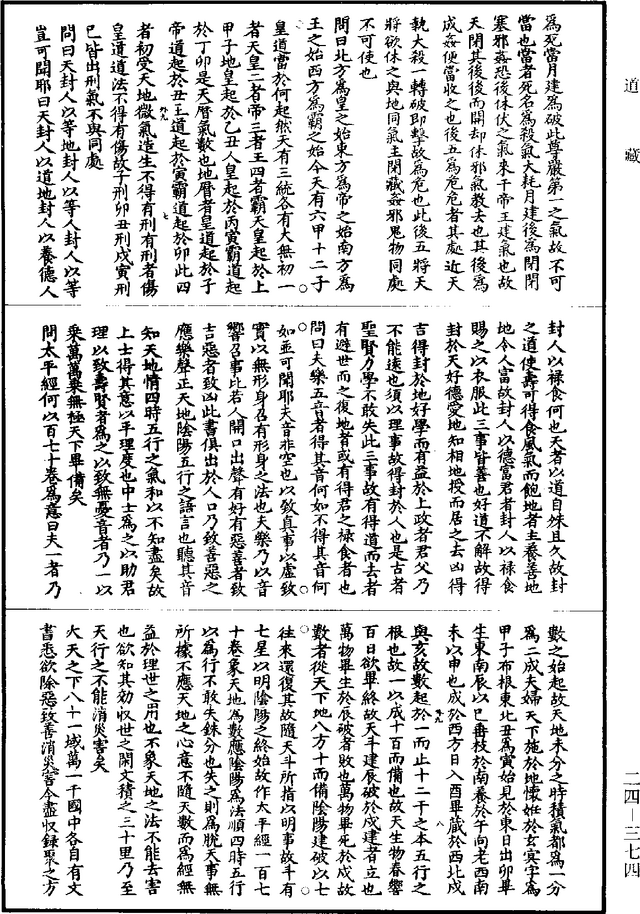 道藏
二四—三七四
為死當月建為破此尊嚴第一之氣故不可
當也當者死名為殺氣大耗月建後為閉閉
塞邪姦恐後休伏之氣來干帝王建氣也故
天閉其後後而開却休邪氣教去也其後為
成姦便當收之也後五為危危者其處近天
執大殺一轉破即擊故為危也此後五將天
將欲休之與地同氣主閉藏姦邪鬼物同處
不可使也
問曰北方為皇之始東方為帝之始南方為
王之始西方為霸之始今天有六甲十二子
皇道當於何起然天有三統各有大無初一
者天皇二者帝三者王四者霸天皇起於上
甲子地皇起於乙丑人皇起於丙寅霸道起
於丁卯是天曆氣數也地曆者皇道起於子
帝道起於丑王道起於寅霸道起於卯此四
者初受天地微氣造生不得有刑有刑者傷
皇道道法不得有傷故子刑卯丑刑戌寅刑
巳皆出刑氣不與同處
問曰天封人以等地封人以等人封人以等
豈可聞耶曰天封人以道地封人以養德人
封人以禄食何也天者以道自殊且久故封
之道使壽可得食風氣而飽地者主養善地
地令人富故封人以德富君者封人以禄食
賜之以衣服此三事皆善也好道不解故得
封於天好德愛地知相地授而居之去凶得
吉得封於地好學而有益於上政者君父乃
不能遠也須以理事故得封於人也是古者
聖賢力學不敢失此三事故有得道而去者
有避世而之復地者或有得君之禄食者也
問曰夫樂五音者得其音何如不得其音何
如並可聞耶夫音非空也以致真事以虛致
實以無形身召有形身之法也夫樂乃以音
響召事比若人開口出聲有好有惡善者致
吉惡者致凶此書俱出於人口乃致善惡之
應樂聲正天地陰陽五行之語言也聽其音
知天地情四時五行之氣和以不知盡矣故
上士得其意以平理度也中士為之以助君
理以致壽賢者為之以致無憂音者乃一以
乘萬萬乘無極天下畢備矣
問太平經何以百七十卷為意曰夫一者乃
數之始起故天地未分之時積氣都為一分
為二成夫婦天下施於地懷妊於玄冥字為
甲子布根東北丑為寅始見於東日出卯畢
生東南辰以巳垂枝於南養於午向老西南
未以申也成於西方日入酉畢藏於西北戌
與亥故數起於一而止十二干之本五行之
根也故一以成十百而備也故天生物春響
百日欲畢終故天斗建辰破於戌建者立也
萬物畢生於辰破者敗也萬物畢死於戌故
數者從天下地八方十而備陰陽建破以七
往來還復其故隨天斗所指以明事故斗有
七星以明陰陽之終始故作太平經一百七
十卷象天地為數應陰陽為法順四時五行
以為行不敢失銖分也失之則為脫天事無
所據不應天地之心意不隨天數而為經無
益於理世之用也不象天地之法不能去害
也欲知其効收世之閑文積之三十里乃至
天行之不能消災害矣
大天之下八十一域萬一千國中各自有文
書悉欲除惡致善消災害今盡收録聚之方